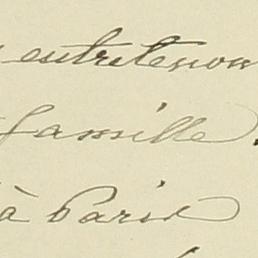 entretenon
famille.
à Paris